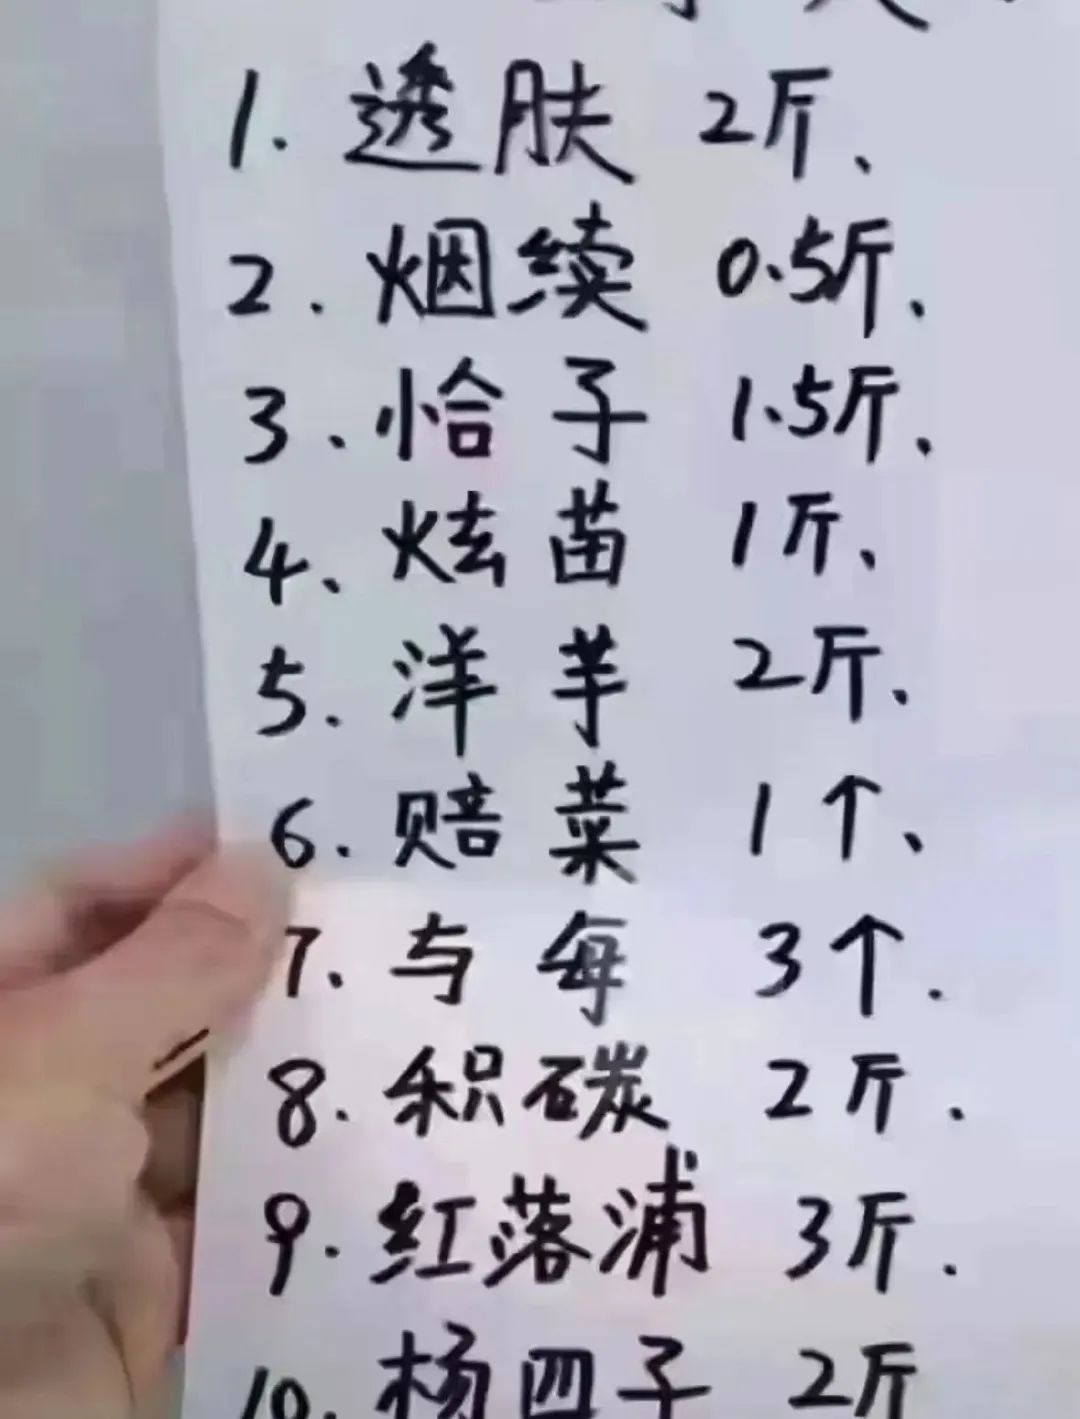 1. 透肤 2斤、
2. 烟续 0.5斤、
3、恰子 1.5斤、
4、炫苗 1斤、
5. 洋芋 2斤、
6. 赔菜 1个、
7、与每 3个.
8. 积碳 2斤.
9. 红落浦 3斤.
10. 杨四子 2斤